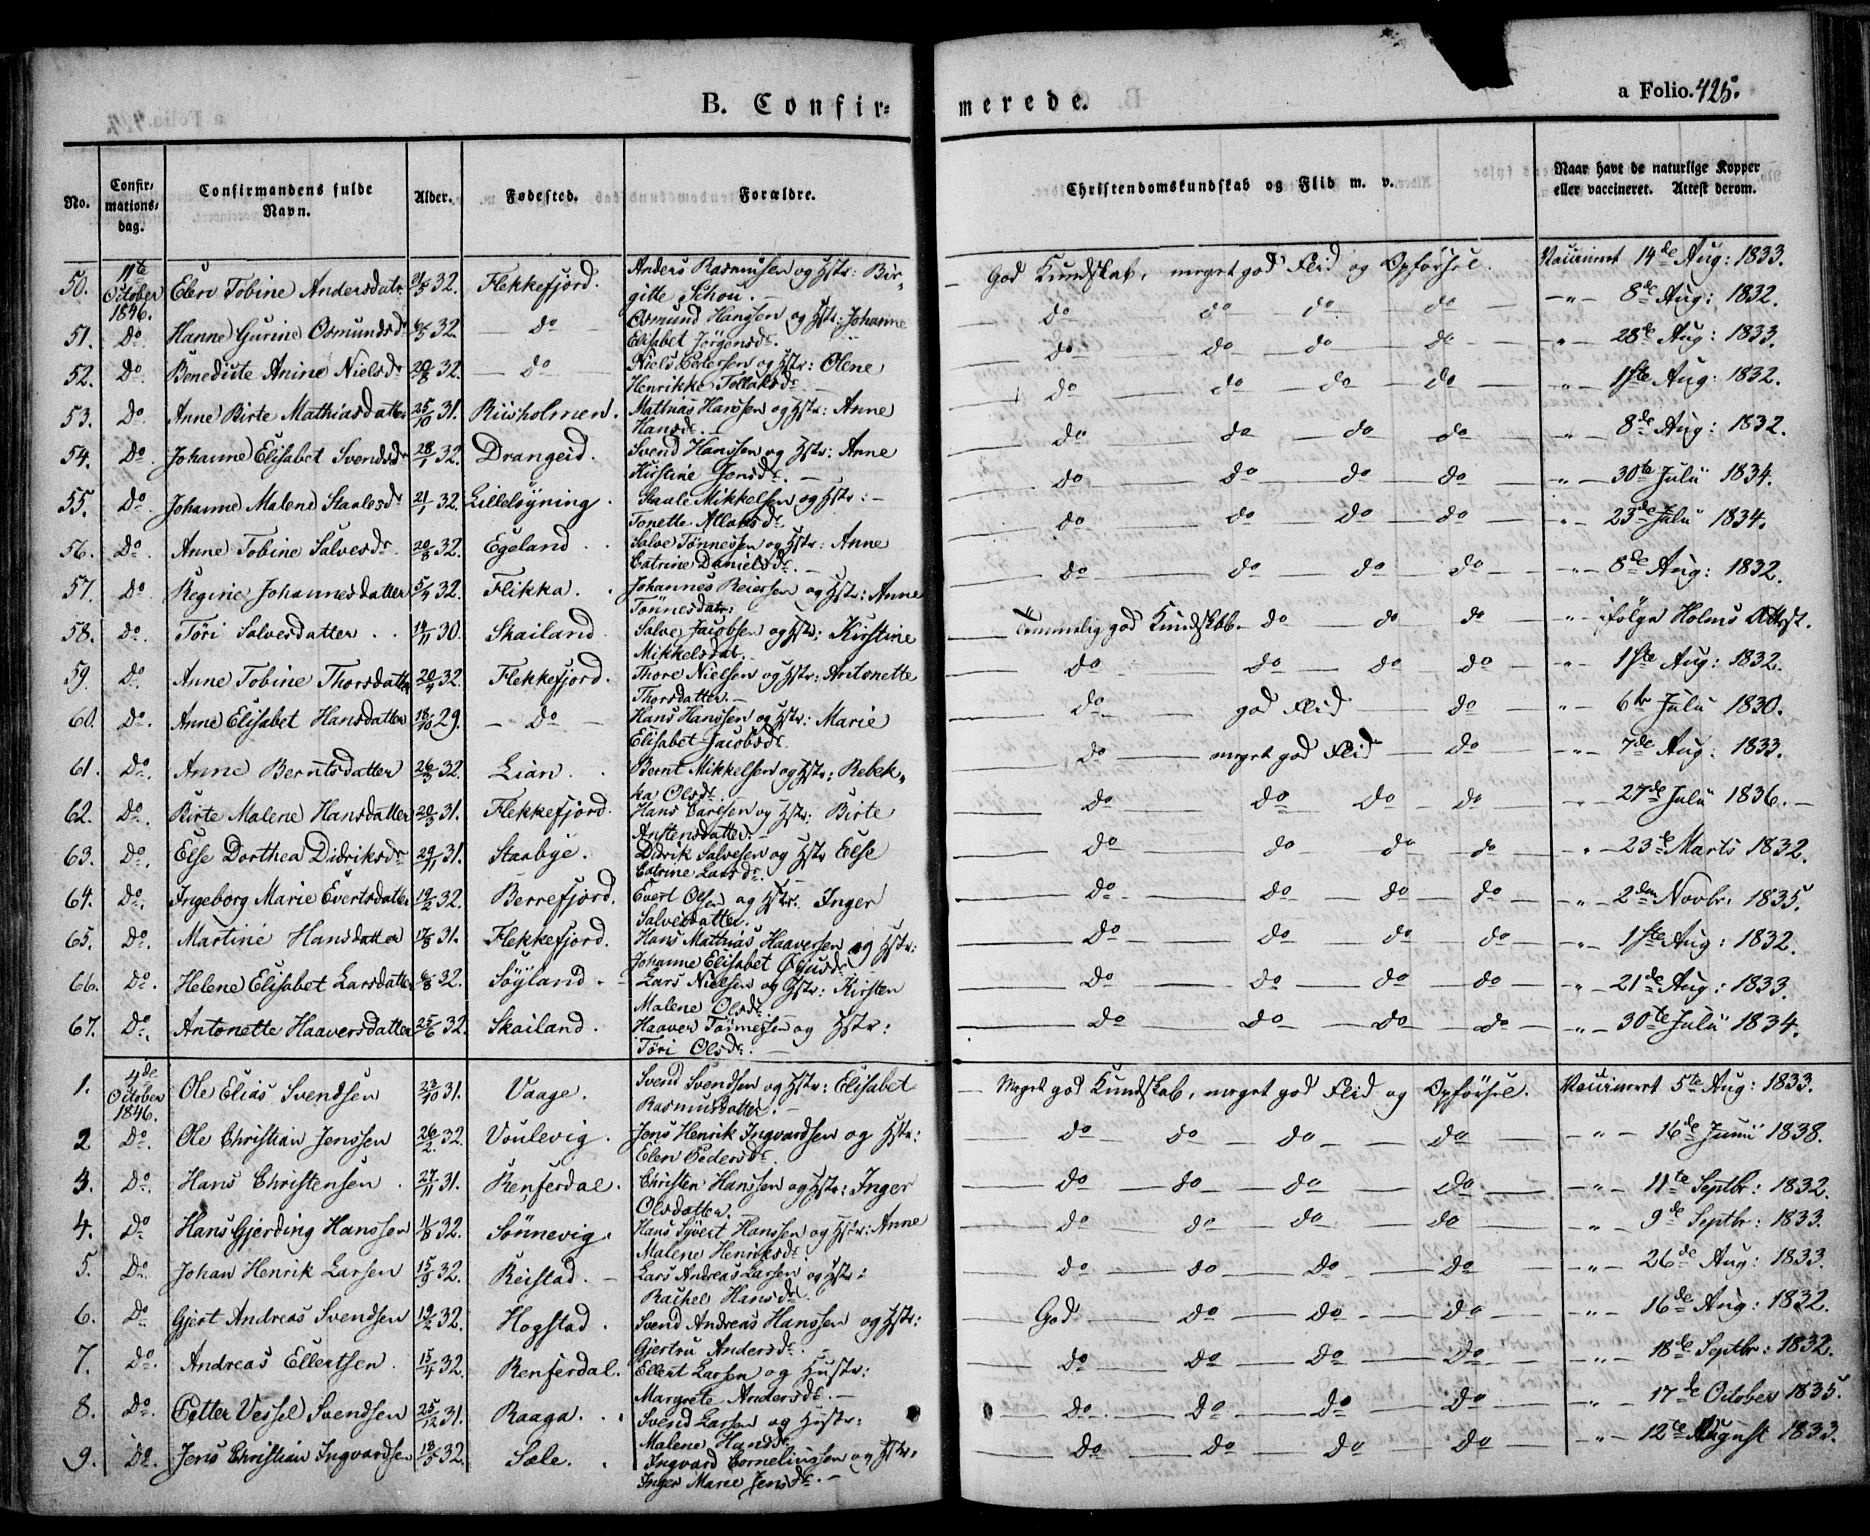 B. Confir=
merede.
a Folio. 425.
No.
Confir=
mations=
dag.
Confirmandens fulde
Navn.
Alder.
Fødested.
Forældre.
Christendomskundskab og Flid m. v.
Naar havt de naturlige Kopper
eller vaccineret. Attest derom.
50. 11te October 1846. Elen Tobine Andersdatr. 21/5 32. Flekkefjord. Anders Rasmusen og Hstr: Bir=
gitte Schou. — God Kundskab, meget god Flid og Opførsel. Vaccineret 14de Aug: 1833.
51. Do. Hanne Gurine Osmundsd. 32. — do — Osmund Hansen og Hstr: Johanne
Elisabet Jørgensdr. do do do do —"— 8de Aug: 1832.
52. Do. Benedicte Anine Nielsdr 20/8 32. — do — Niels Pedersen og Hstr: Olene
Henrikke Tollaksdr. do do do do " — 28de Aug: 1833.
53. Do Anne Birte Mathiasdatter 25/10 31. Riisholmen. Mathias Hansen og Hstr: Anne
Hansdr. — do do do do " — 1ste Aug: 1832.
54. Do. Johanne Elisabet Svendsdr 28/1 32. Drangeid. Svend Hanssen og Hstr: Anne
Kirstine Jensdr. — do do do do " — 8de Aug: 1832.
55. Do. Johanne Malene Staalesdr 21/1 32. Lilleløyning. Staale Mikkelsen og Hstr: —
Tonette Atlaksdr. do do do do " — 30te Julii 1834.
56. Do. Anne Tobine Salvesdr. 20/8 32. Egeland. Salve Tønnessen og Hstr: Anne
Catrine Danielsdr. — do do do do " — 23de Julii 1834.
57. Do. Regine Johannesdatter 5/4 32. Flikka. Johannes Reiersen og Hstr: Anne
Tønnesdatr: do do do do " — 8de Aug: 1832.
58. Do. Tøri Salvesdatter. 19/11 30. Skailand. Salve Jacobsen og Hstr: Kirstine
Mikkelsdat. Temmelig god Kundskab. do do do " — ifølge Holms Attest.
59. Do. Anne Tobine Thorsdatter 20/4 32. Flekkefjord. Thore Nielsen og Hstr: Antonette
Thorsdatter. — do do do do " — 1ste Aug: 1832.
60. Do. Anne Elisabet Hansdatter 18/10 29. — Do — Hans Hanssen og Hstr: Marie
Elisabet Jacobsdr. do god Flid do " — 6te Julii 1830.
61. Do. Anne Berntsdatter 26/5 32. Lian. Bernt Mikkelsen og Hstr: Rebek=
ka Olsdr. do meget god Flid do " — 7de Aug: 1833.
62. Do. Birte Malene Hansdatter 20/3 31. Flekkefjord. Hans Carlsen og Hstr: Birte
Anstensdatter. — do do do do " — 27de Julii 1836. —
63. Do. Else Dorthea Didriksdr 29/11 31. Staabye. Didrik Salvesen og Hstr Else
Catrine Larsdr. do do do do " — 23de Marts 1832.
64. Do. Ingeborg Marie Evertsdatter 19/2 32. Berrefjord. Evert Olsen og Hstr. Inger
Salvesdatter. do do do do " — 2den Novbr. 1835.
65. Do. Martine Hansdatter 17/8 31. Flekkefjord. Hans Mathias Haaversen og Hstr:
Johanne Elisabet do do do do " — 1ste Aug: 1832.
66. Do. Helene Elisabet Larsdatter 6/8 32. Søyland. Lars Nielsen og Hstr: Kirsten
Malene Olsdr. do do do do " — 21de Aug: 1833.
67. Do. Antonette Haaversdatter 25/6 32. Skailand. Haaver Tønnesen og Hstr:
Tøri Olsdr. — do do do do " — 30te Julii 1834.
1. 4de October 1846. Ole Elias Svendsen 23/10 31. Vaage. Svend Svendsen og Hstr: Elisabet
Rasmusdatter. — Meget god Kundskab, meget god Flid og Opførsel. Vaccineret 5te Aug: 1833.
2 Do. Ole Christian Jenssen 26/2 32. Voulevig. Jens Henrik Ingvardsen og Hstr:
Elen Pedersdr. do do do do —"— 16de Junii 1838.
3. Do. Hans Christensen. 27/11 31. Renferdal. Christen Hanssen og Hstr: Inger
Olsdatter. — do do do do —"— 11te Septbr: 1832.
4. Do Hans Gjerding Hanssen 11/8 32. Sønnevig. Hans Syvert Hanssen og Hstr: Anne
Malene Henriksdr. do do do do " — 9de Septbr: 1833.
5. Do. Johan Henrik Larsen 15/9 32. Reistad. — Lars Andreas Larsen og Hstr:
Rachel Hansdr. do do do do —"— 26de Aug: 1833.
6. Do Gjert Andreas Svendsen 19/2 32. Hogstad. Svend Andreas Hanssen og Hstr:
Gjertru Andersdr. God do do do " — 16de Aug: 1832.
7. Do. Andreas Ellertsen. 15/4 32. Renferdal. Ellert Larsen og Hustr:
Margrete Andersdr. — do do do do —"— 18de Septbr: 1832.
8. Do. Petter Vessel Svendsen 25/12 31. Raaga. Svend Larsen og Hustr:
Malene Hansdr do do do do —"— 17de October 1835.
9. Do. Jens Christian Ingvardsen 13/5 32. Sæle. Ingvard Corneliussen og Hstr.
Inger Marie Jensdr. — do do do do —"— 12te August 1833.